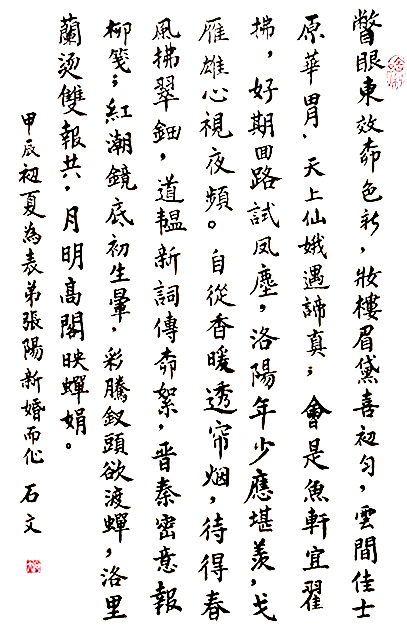 瞥眼東效柰色新，妝樓眉黛喜初勻，雲間佳士
原華胄，天上仙娥遇諦真；會是魚軒宜翟
拂，好期回路試凤塵，洛陽年少應堪羨，戈
雁雄心視夜頻。自從香暖透帘烟，待得春
風拂翠鈿，道韞新詞傳柰絮，晋秦密意報
柳箋；紅潮鏡底初生暈，彩騰釵頭欲渡蟬，洛里
蘭燙雙報共，月明高閣映蟬娟。
甲辰初夏為表弟張陽新婚而作 石文